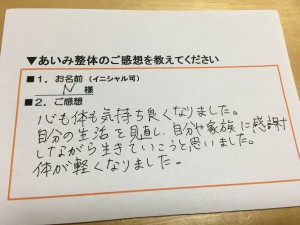 ▼あいみ整体のご感想を教えてください
■1．お名前（イニシャル可）
N 様
■2．ご感想
心も体も気持ち良くなりました。
自分の生活を見直し、自分や家族に感謝
しながら生きていこうと思いました。
体が軽くなりました。